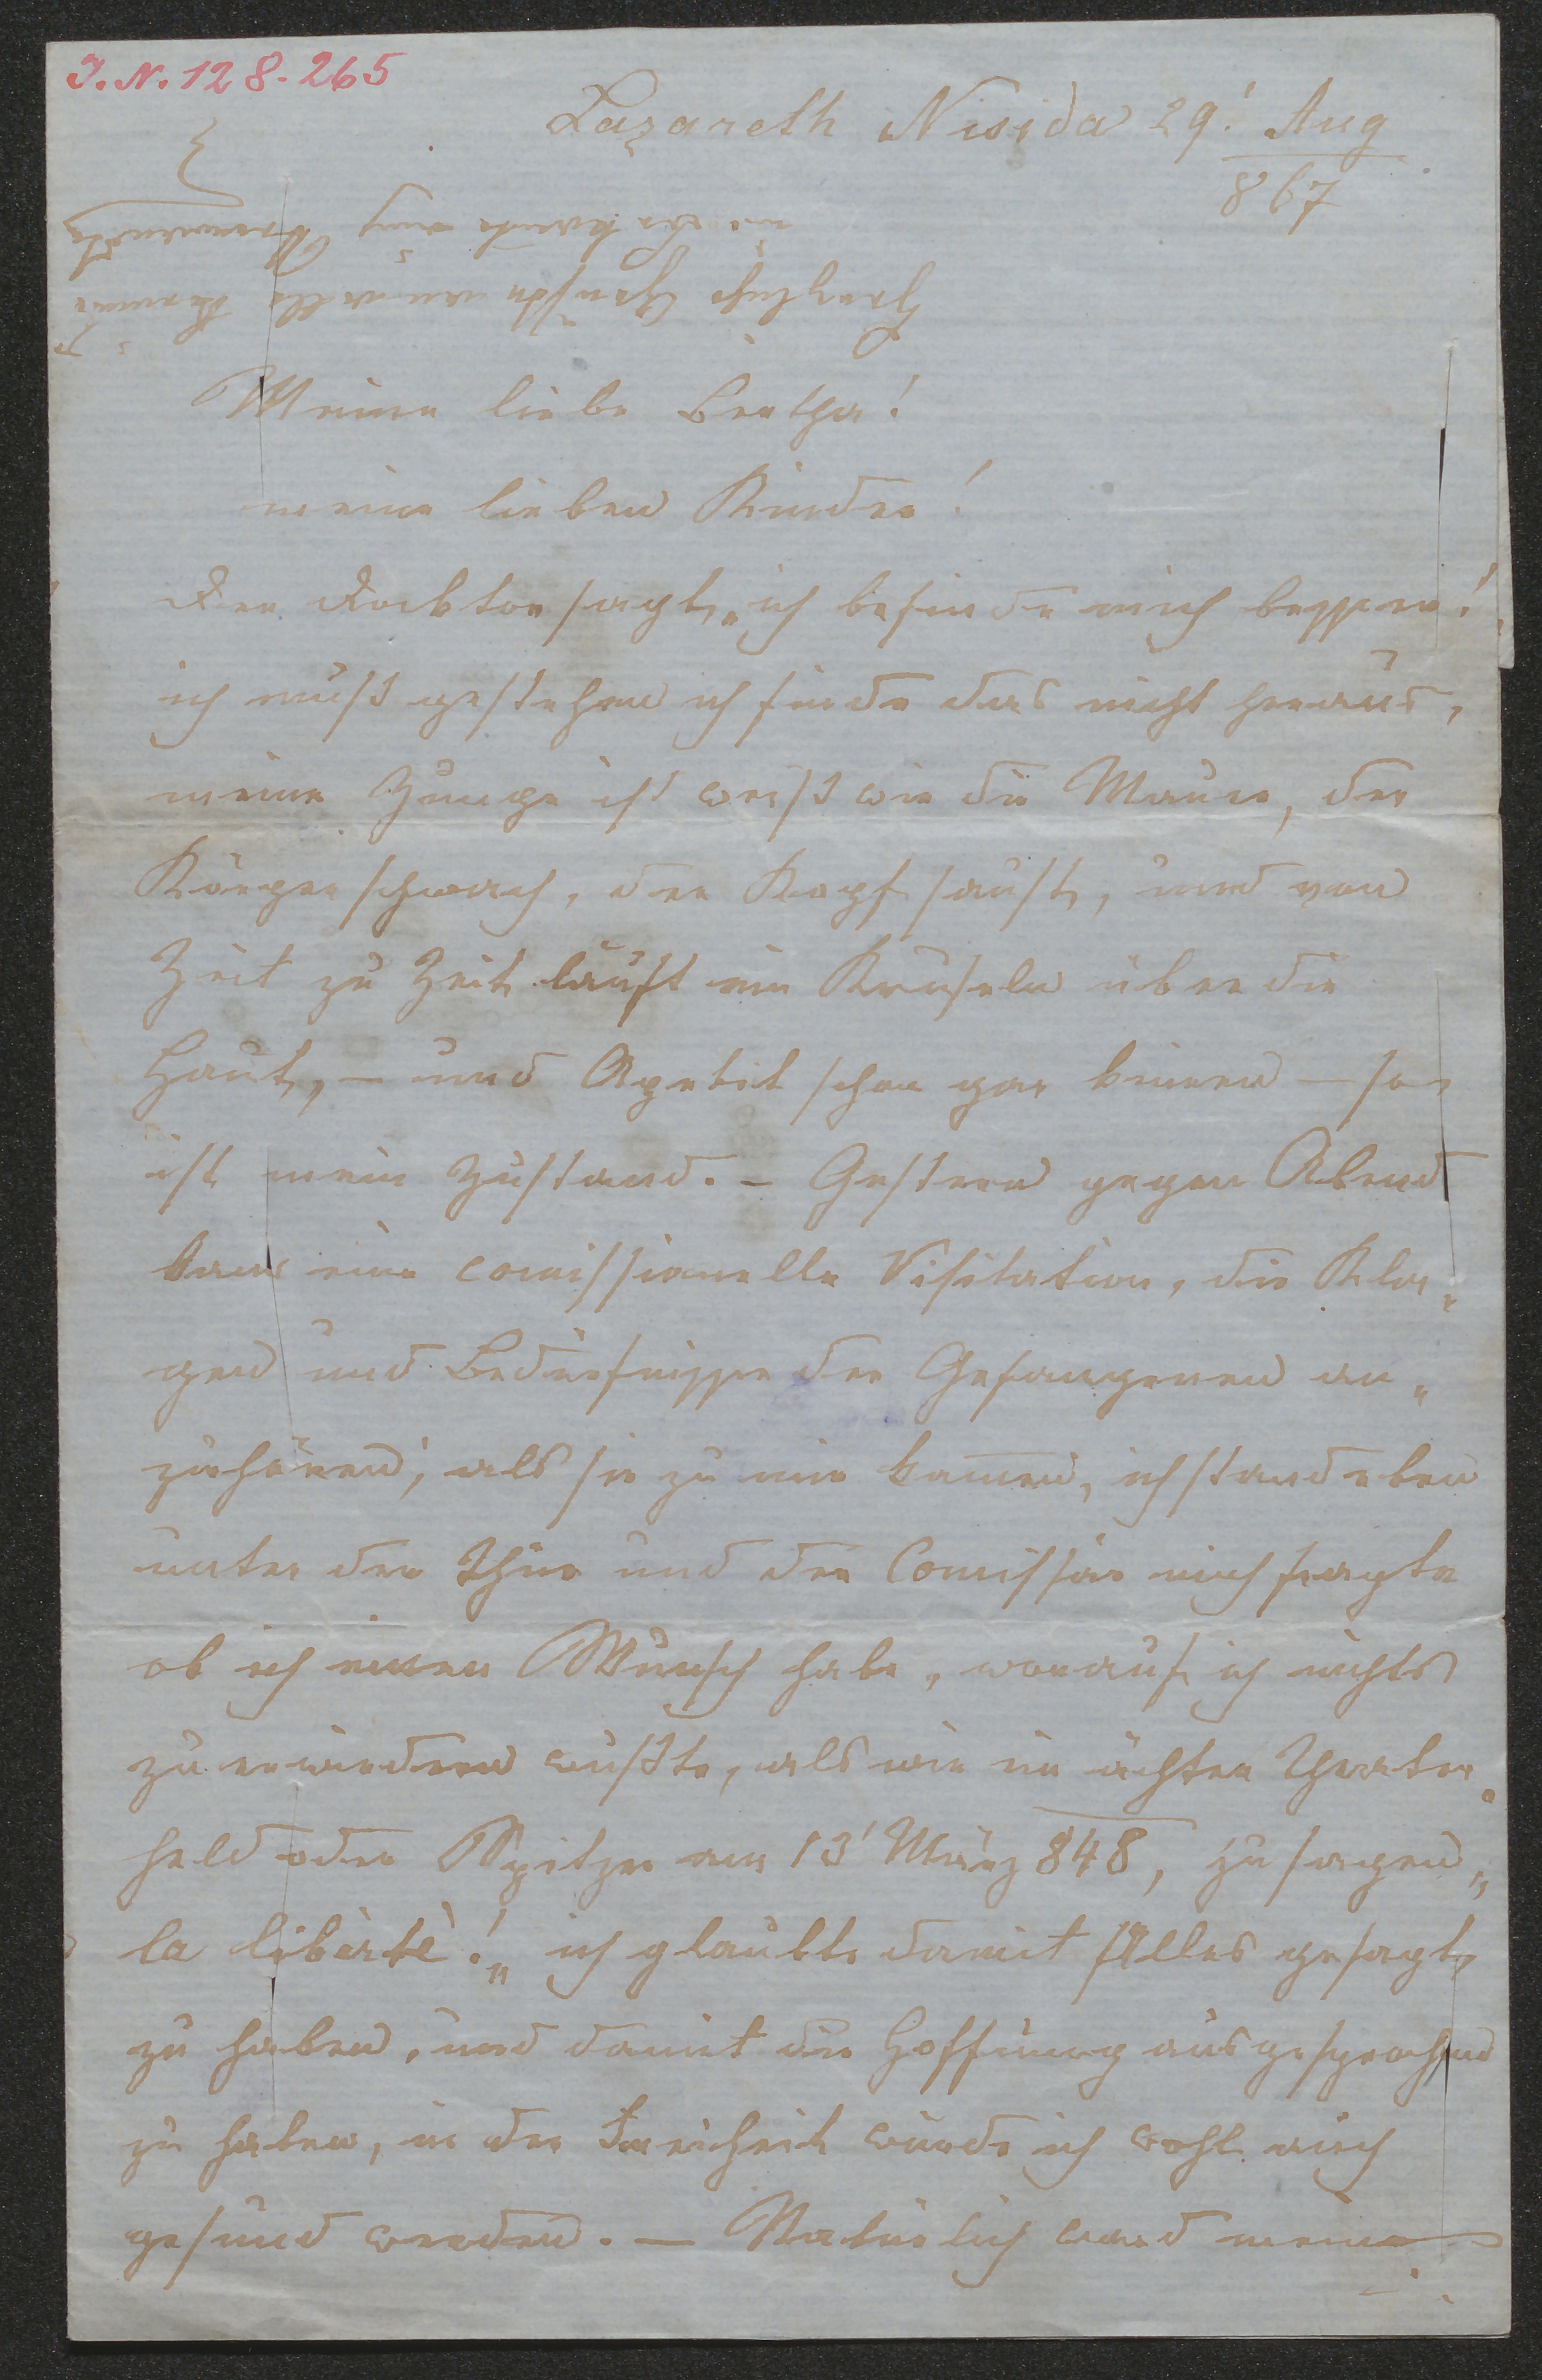 J. N. 128.265
Lazareth Nisida 29! Aug
867
Meine liebe Bertha!
meine lieben Kinder!
Der Docktor sagt, „ich befinde mich besser!
ich muß gestehen ich finde das nicht heraus,
meine Zunge ist weiß wie die Mauer, der
Körper schwach, der Kopf saust, und von
Zeit zu Zeit läuft ein Kruseln über die
Haut, – und Apetit schon gar keinen – so
ist mein Zustand. – Gestern gegen Abend
kam eine comissionelle Visitation, die Kla„
gen und Bedürfnisse der Gefangenen an„
zuhören; als sie zu mir kamen, ich stand eben
unter der Thür und der Comissär mich fragte
ob ich einen Wunsch habe, worauf ich nichts
zu erwiedern wußte, als wie ein ächter Theater„
held oder Spitzer am 13' März 848, zu sagen „
la libèrtè!„ ich glaubte damit Alles gesagt
zu haben, und damit die Hoffnung ausgesprochen
zu haben, in der Freiheit würde ich wohl auch
gesund werden. – Natürlich ward meine
Herzliche Grüße an alle